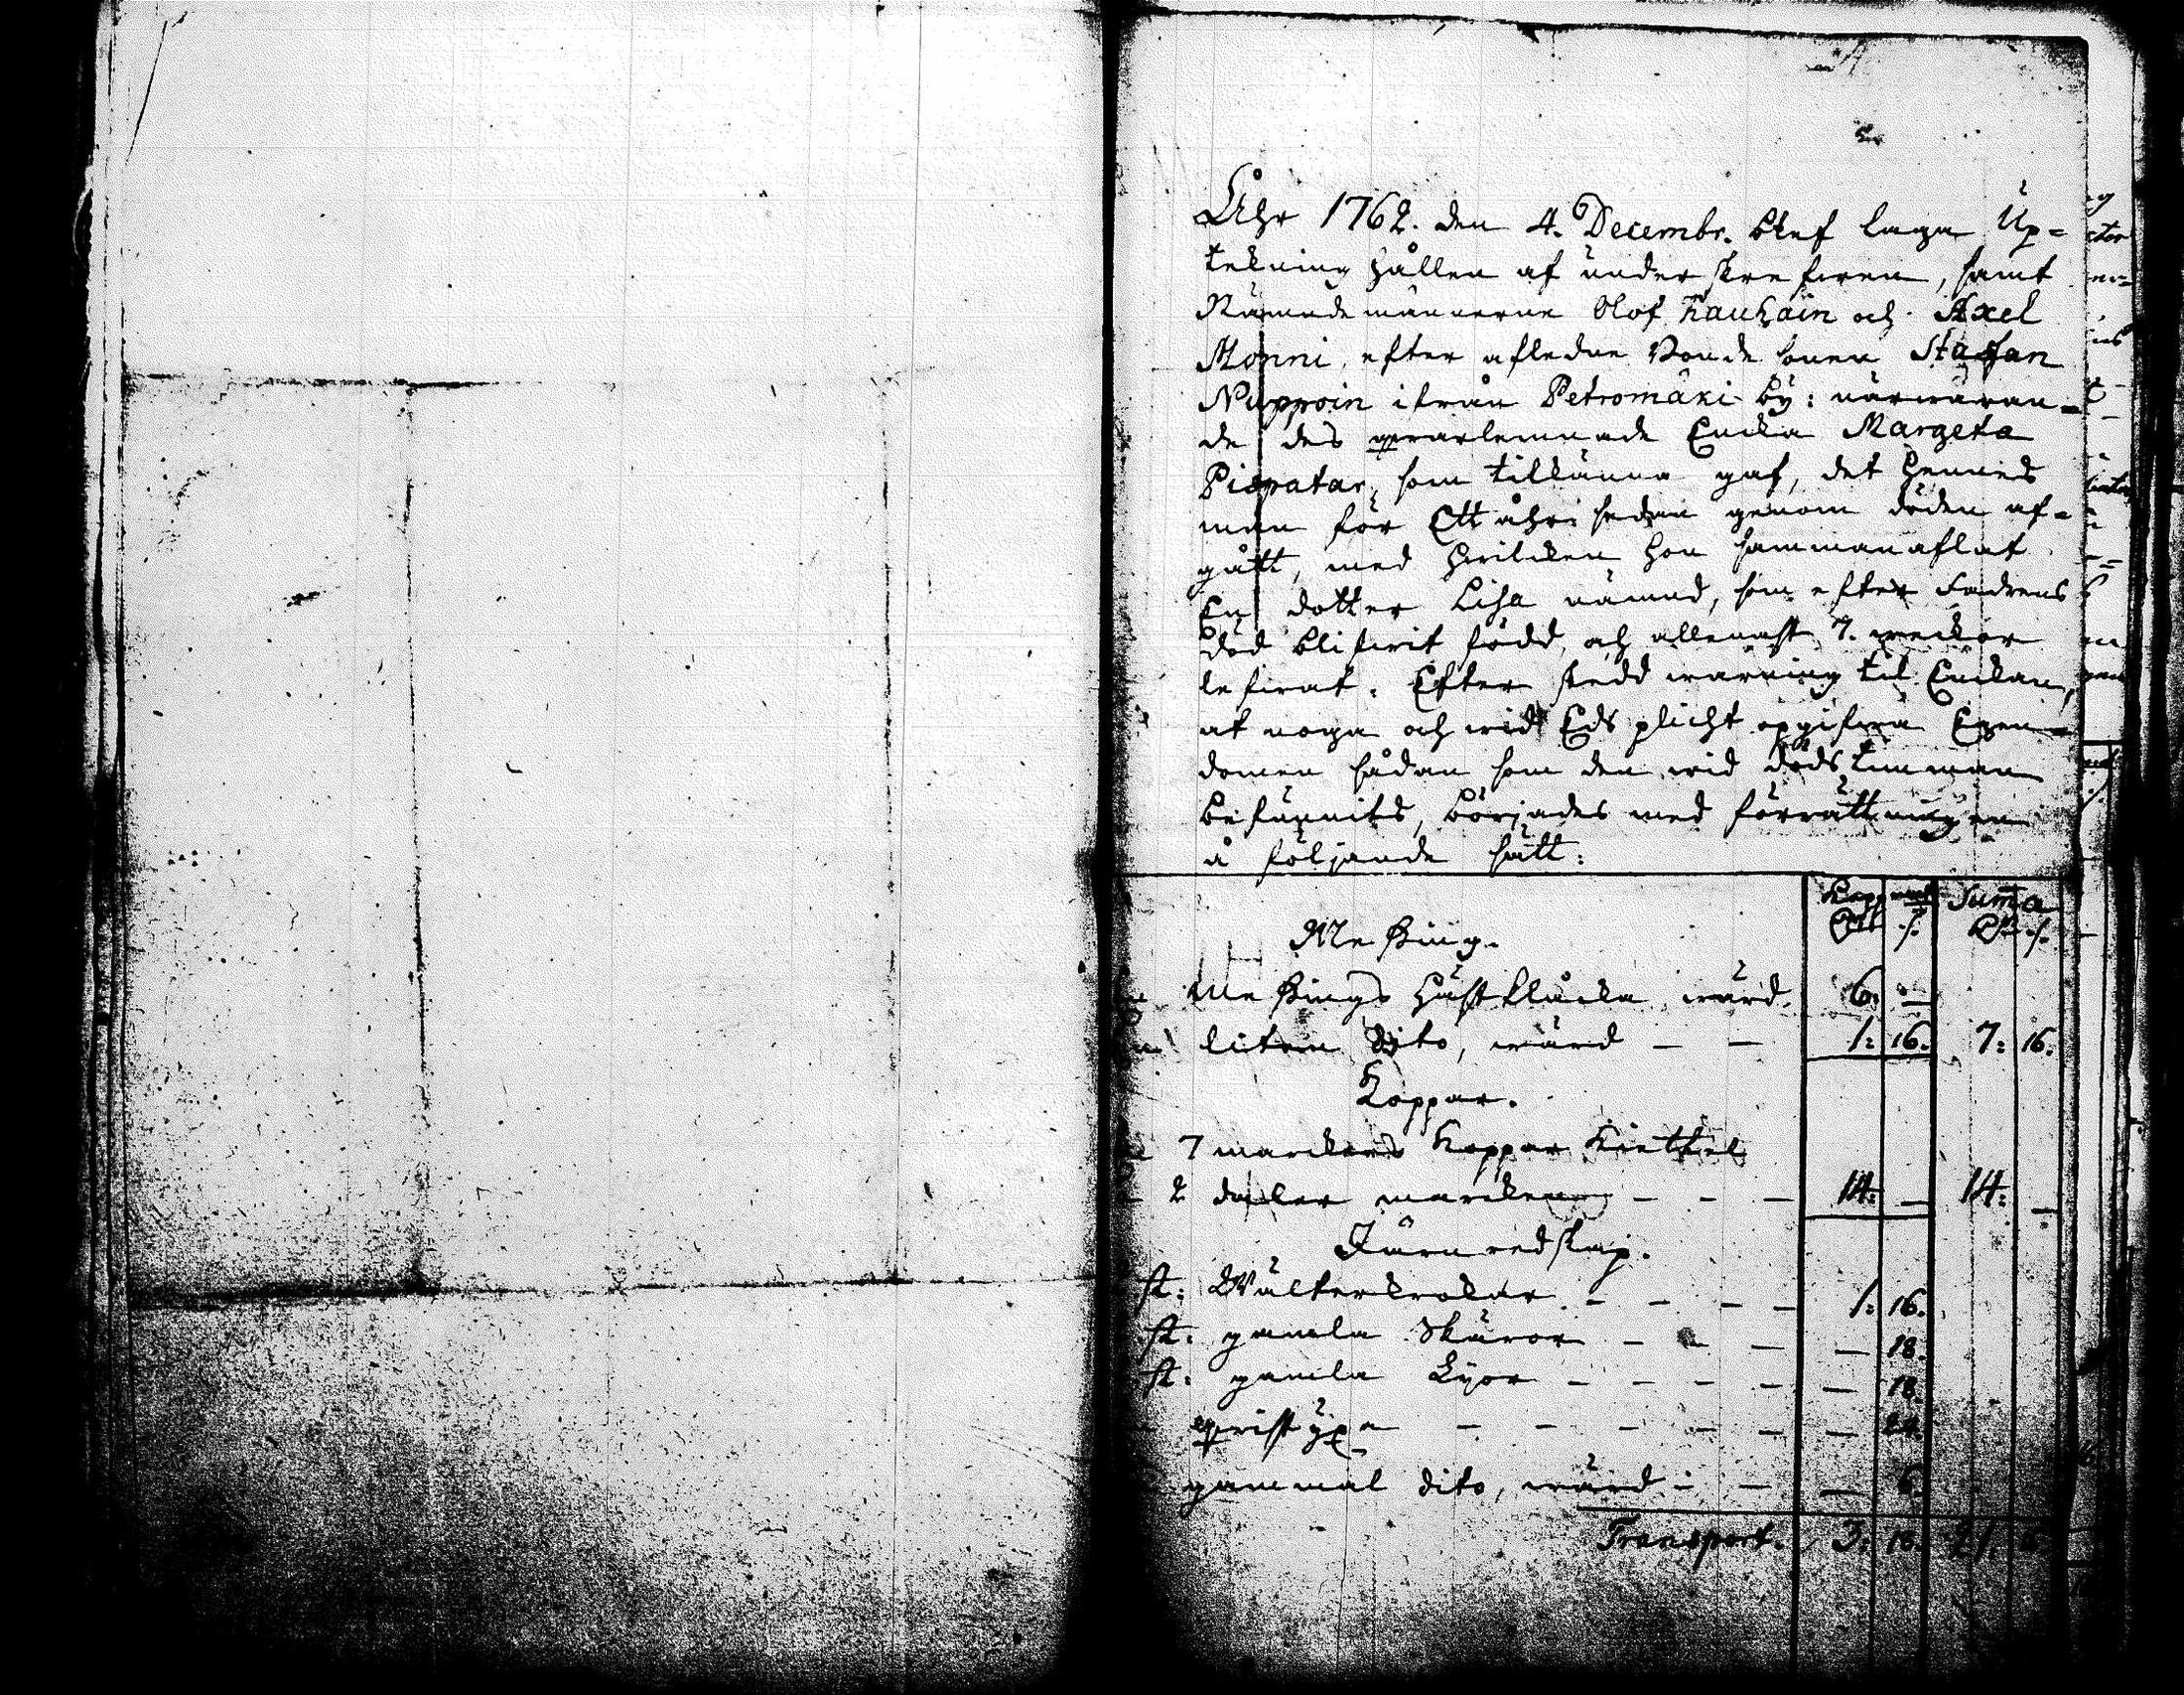 Åhr 1762. den 4. Decembr. blef laga Up=
tekning hållen af underskrefwen, samt
Nämndemännerne Olof Kauhain och Axel
Monni, efter afledne Bonde sonen Staffan
Nupponin ifrån Petromäki by: närwaran=
de des qwarlemnade Encka Margeta
Piepatar, som tillkänna gaf, det hennes
man för Ett åhr sedan genom döden af=
gått, med hwilcken hon sammanaflat
En dotter Lisa nämnd, som efter Fadrens
död blifwit född, och allenast 7. weckor
lefwat. Efter skedd warning til Enckan,
at noga och wid Eds plicht opgifwa Egen=
domen sådan som den wid döds timman
befunnits, börjades med förrättningen
å följande sätt:
Kopp mt Suma
Messing.
Messings Hästklåcka, wärd. 6: —
liten dito, wärd — — 1: 16. 7: 16.
Koppar.
7 marckers Koppar Kiettel
2 daler marcken — — — 14: — 14: —
Järnredskap.
st: Wälterkrokar — — — — 1: 16.
st: gamla Skäror — — — — 18.
st: gamla Lyor — — — — — 18.
qwist yxa — — — — — — 24.
gammal dito, wärd — — — 6.
Transport. 3: 18. 21.